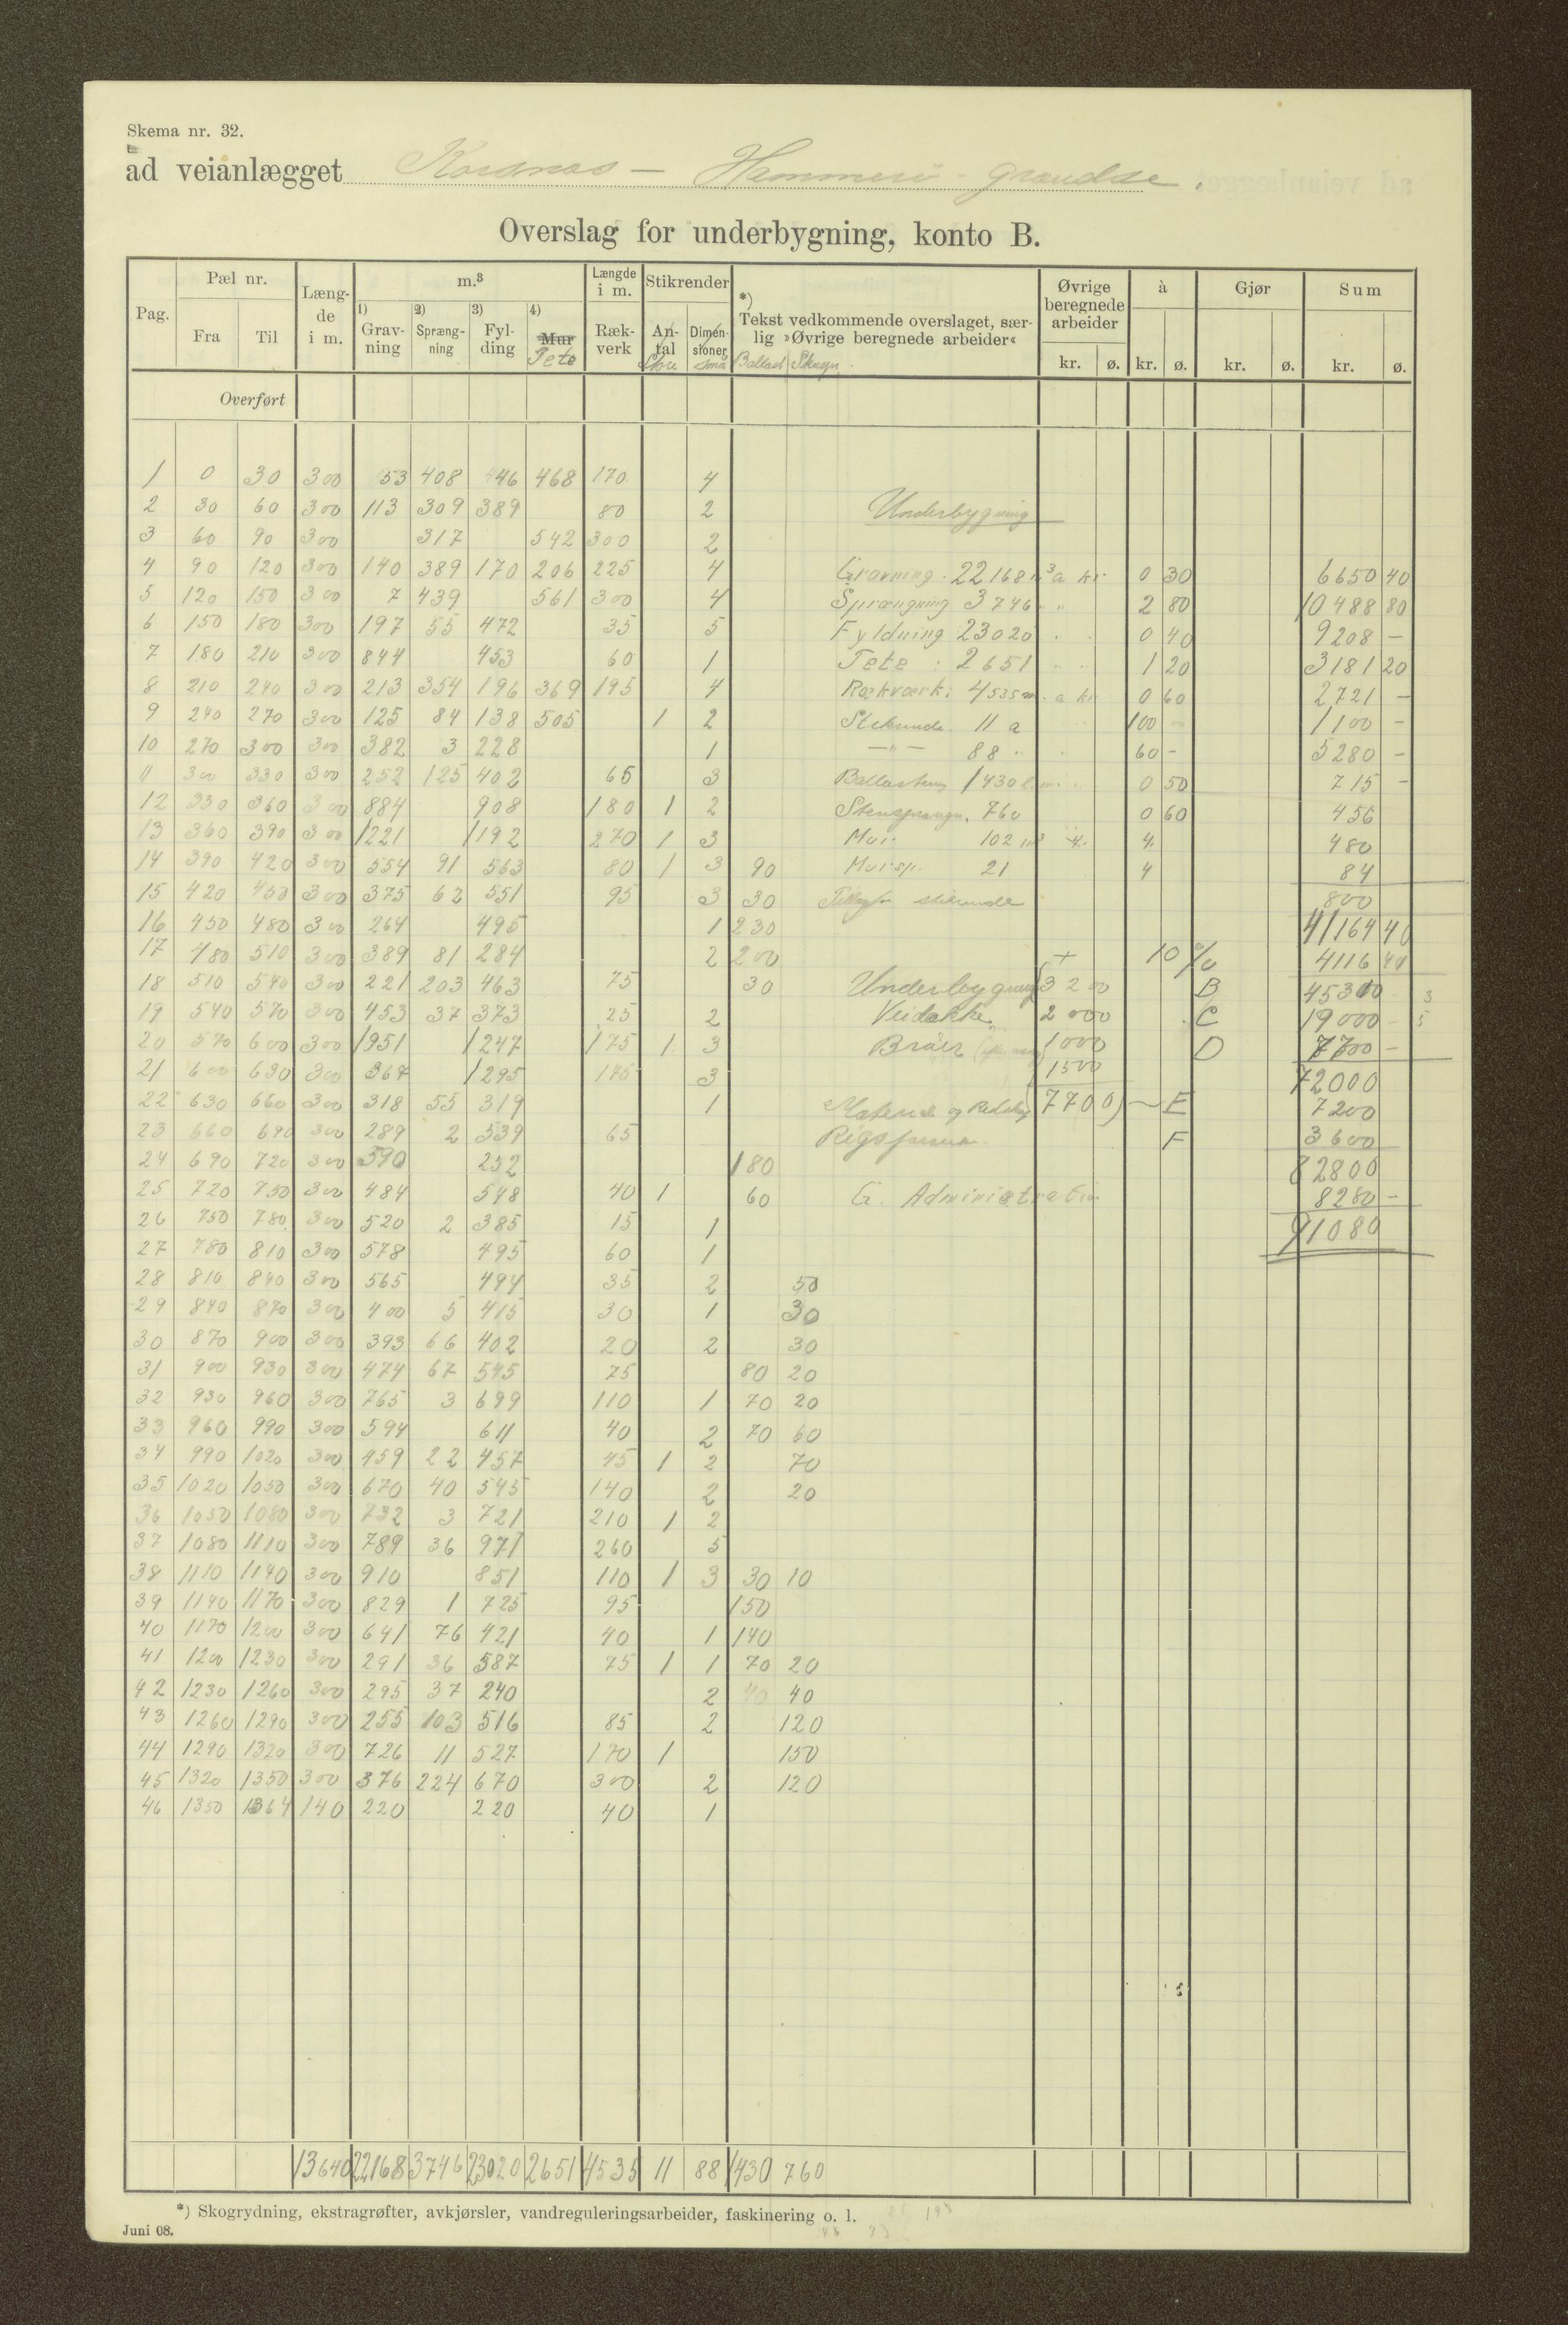 Skema nr. 32.
ad veianlægget Korsnes — Hammerø - Grændse.
Overslag for underbygning, konto B.
Pag. Pæl nr. Længde i m. m.³ Længde i m. Stikrender *) Tekst vedkommende overslaget, særlig »Øvrige beregnede arbeider« Øvrige beregnede arbeider à Gjør Sum
Fra Til 1) Gravning 2) Sprængning 3) Fylding 4) Mur Tete Rækverk Antal Store Dimensioner små Ballast kr. ø. kr. ø. kr. ø. kr. ø.
Overført
1 0 30 300 53 408 446 468 170 4
2 30 60 300 113 309 389 80 2 Underbygning
3 60 90 300 317 542 300 2
4 90 120 300 140 389 170 206 225 4 Gravning . 22168 m³ a kr. 0 30 6650 40
5 120 150 300 7 439 561 300 4 Sprængning 3746 " 2 80 10488 80
6 150 180 300 197 55 472 35 5 Fyldning 23020 0 40 9208 —
7 180 210 300 844 453 60 1 Tete . 2651 " 1 20 3181 20
8 210 240 300 213 354 196 369 195 4 Rækværk: 4535 m. a kr 0 60 2721 —
9 240 270 300 125 84 138 505 1 2 11 a 100 — 1100 —
10 270 300 300 382 3 228 1 — " — 88 60 — 5280 —
11 330 300 330 300 252 125 402 65 3 1430 0 50 715 —
12 330 360 300 884 908 180 1 2 760 0 60 456
13 360 390 300 1221 1192 270 1 3 Mur. 102 m³ 4. 4. 480
14 390 420 300 554 91 563 80 1 3 90 21 4 84
15 420 450 300 375 62 551 95 3 30 800
16 450 480 300 264 495 1 230 41164 40
17 480 510 300 389 81 284 2 200 + 10 % 4116 40
18 510 540 300 221 203 463 75 30 Underbygning 3200 B 45300 3
19 540 570 300 453 37 373 25 2 Veidække 2000 C 19000 — 5
20 570 600 300 1951 1247 175 1 3 Broer 1000 D 7700 —
21 600 630 300 367 1295 175 3 1500 72000
22 630 660 300 318 55 319 1 Materiel og Redskap 7700) — E 7200
23 660 690 300 289 2 539 65 F 3600
24 690 720 300 590 232 180 82800
25 720 750 300 484 548 40 1 60 G. Administration 8280 —
26 750 780 300 520 2 385 15 1 91080
27 780 810 300 578 495 60 1
28 810 840 300 565 494 35 2 50
29 840 870 300 400 5 415 30 1 30
30 870 900 300 393 66 402 20 2 30
31 900 930 300 474 67 545 75 80 20
32 930 960 300 765 3 699 110 1 70 20
33 960 990 300 594 611 40 2 70 60
34 990 1020 300 459 22 457 45 1 2 70
35 1020 1050 300 670 40 545 140 2 20
36 1050 1080 300 732 3 721 210 1 2
37 1080 1110 300 789 36 971 260 5
38 1110 1140 300 910 851 110 1 3 30 10
39 1140 1170 300 829 1 725 95 150
40 1170 1200 300 641 76 421 40 1 140
41 1200 1230 300 291 36 587 75 1 1 70 20
42 1230 1260 300 295 37 240 2 40 40
43 1260 1290 300 255 103 516 85 2 120
44 1290 1320 300 726 11 527 170 1 150
45 1320 1350 300 376 224 670 300 2 120
46 1350 1364 140 220 220 40 1
13640 22168 3746 23020 2651 4535 11 88 1430 760
*) Skogrydning, ekstragrøfter, avkjørsler, vandreguleringsarbeider, faskinering o. l.
Juni 08.